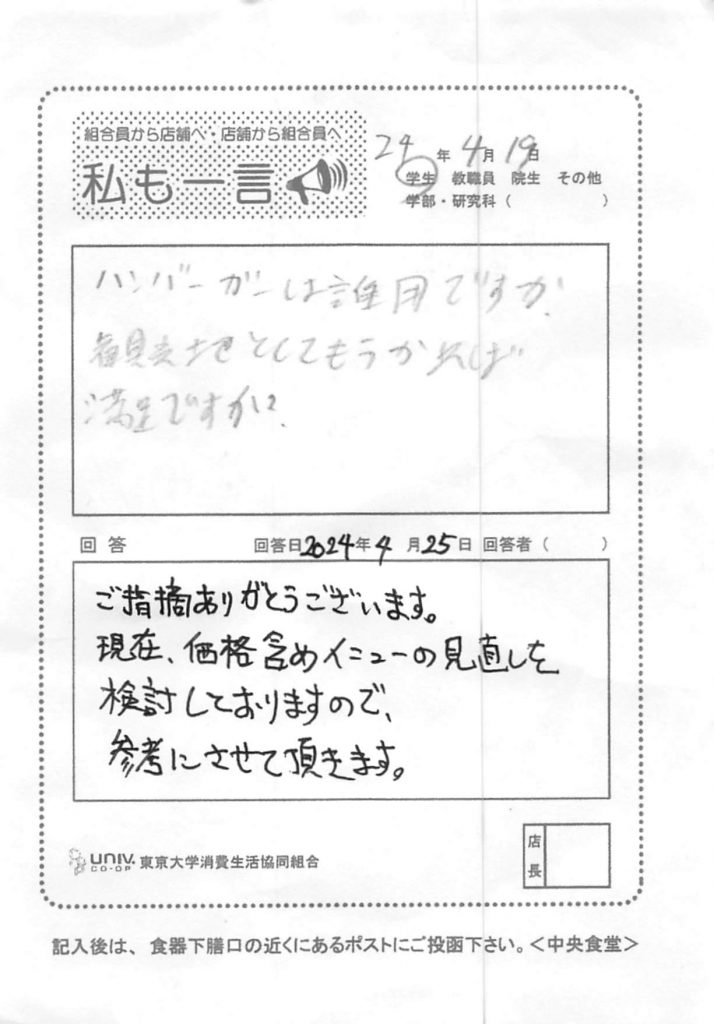 組合員から店舗へ・店舗から組合員へ
私も一言
24年4月19日
学生 教職員 院生 その他
学部・研究科（ ）
ハンバーガーは誰用ですか。
観光地としてもうかれば
満足ですか?
回答 回答日2024年4月25日 回答者（ ）
ご指摘ありがとうございます。
現在、価格含めメニューの見直しを
検討しておりますので、
参考にさせて頂きます。
店長
UNIV. CO-OP 東京大学消費生活協同組合
記入後は、食器下膳口の近くにあるポストにご投函下さい。＜中央食堂＞